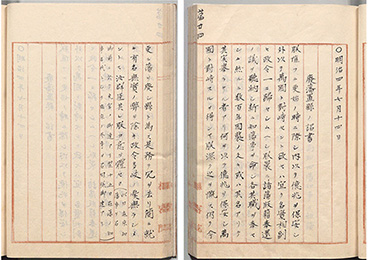 〇明治四年七月十四日
廢藩置縣ノ詔書
朕惟フニ更始ノ時ニ際シ内以テ億兆ヲ保安シ
外以テ萬國ト對峙セント欲セハ宜ク名實相副
ヒ政令一ニ歸セシムヘシ朕曩ニ諸藩版籍奉還
ノ議ヲ聽納シ新ニ知藩事ヲ命シ各其職ヲ奉セ
シム然ルニ数百年因襲ノ久キ或ハ其名アリテ
其實擧ラサル者アリ何ヲ以テ億兆ヲ保安シ萬
國ト對峙スルヲ得ンヤ朕深ク之ヲ慨ス仍テ今
更ニ藩ヲ廢シ縣ト為ス是務テ冗ヲ去リ簡ニ就
キ有名無實ノ弊ヲ除キ政令多岐ノ憂無ラシメ
ントス汝群臣其レ朕カ意ヲ體セヨ